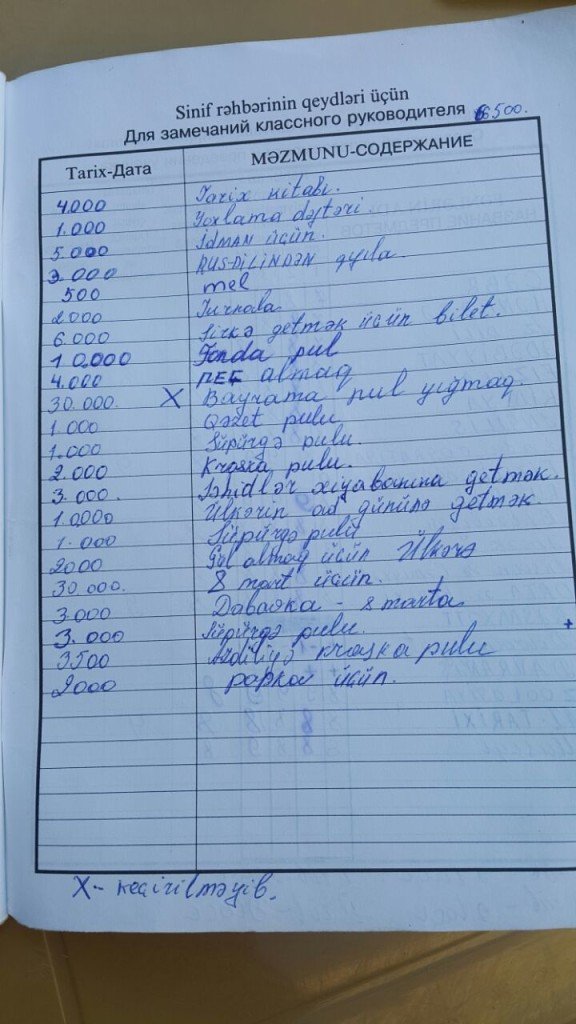 Sinif rəhbərinin qeydləri üçün
Для замечаний классного руководителя 6500.
Tarix-Дата MƏZMUNU-СОДЕРЖАНИЕ
4.000 Tarix kitabı.
1.000 Yoxlama dəftəri
5.000 İdman üçün.
3.000 RUS-DİLİNDƏN
500 mel
2000 Jurnala
6.000 Sirkə getmək üçün bilet.
10.000 Fonda pul
4.000 almaq
30.000. X Bayrama pul yığmaq.
1.000 Qəzet pulu
1.000 Süpürgə pulu.
2.000 Kraska pulu.
3.000. Şəhidlər xiyabanına getmək.
10.000 Ülkərin ad gününə getmək
1.000 Süpürgə pulu
2000 Gül almaq üçün Ülkərə
30.000. 8 mart üçün.
3.000 Davaска - 8 marta
3.000 Süpürgə pulu. +
3500 kraska pulu
2000 papka üçün.
X- keçirilməyib.